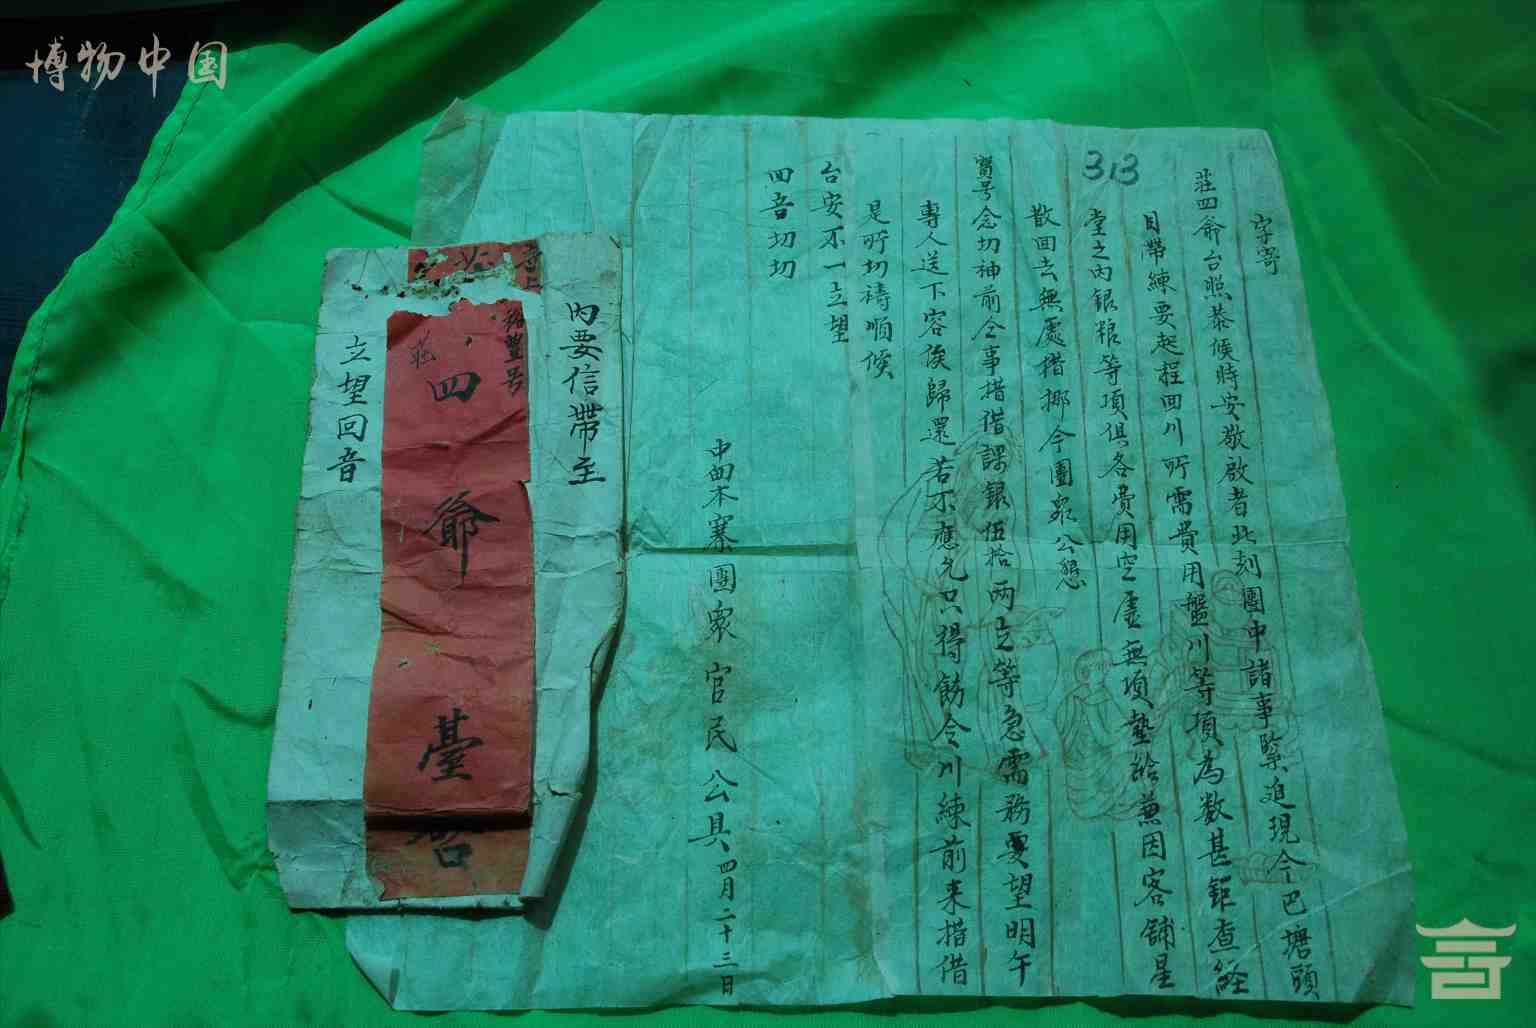 博物中国
313
字寄
莊四爺台照恭候時安敬啟者此刻團中諸事緊迫現今巴塘頭
目帶練要起程回川所需費用盤川等項為數甚鉅查經
堂之內銀粮等項俱各費用空虛無項墊給兼因客鋪星
散回去無處措挪今團眾公懇
寶号念切神前仝事措借課銀伍拾兩立等急需務要望明午
專人送下容後歸還若不應允只得飭令川練前来措借
是所切禱順候
台安不一立望
回音切切
中四本寨團眾官民公具四月二十三日
內要信帶至
裕豐号
莊
四爺臺啓
立望回音